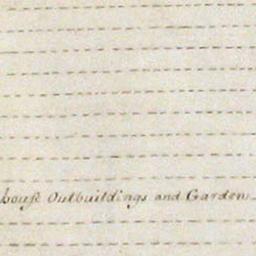 house Outbuildings and Garden